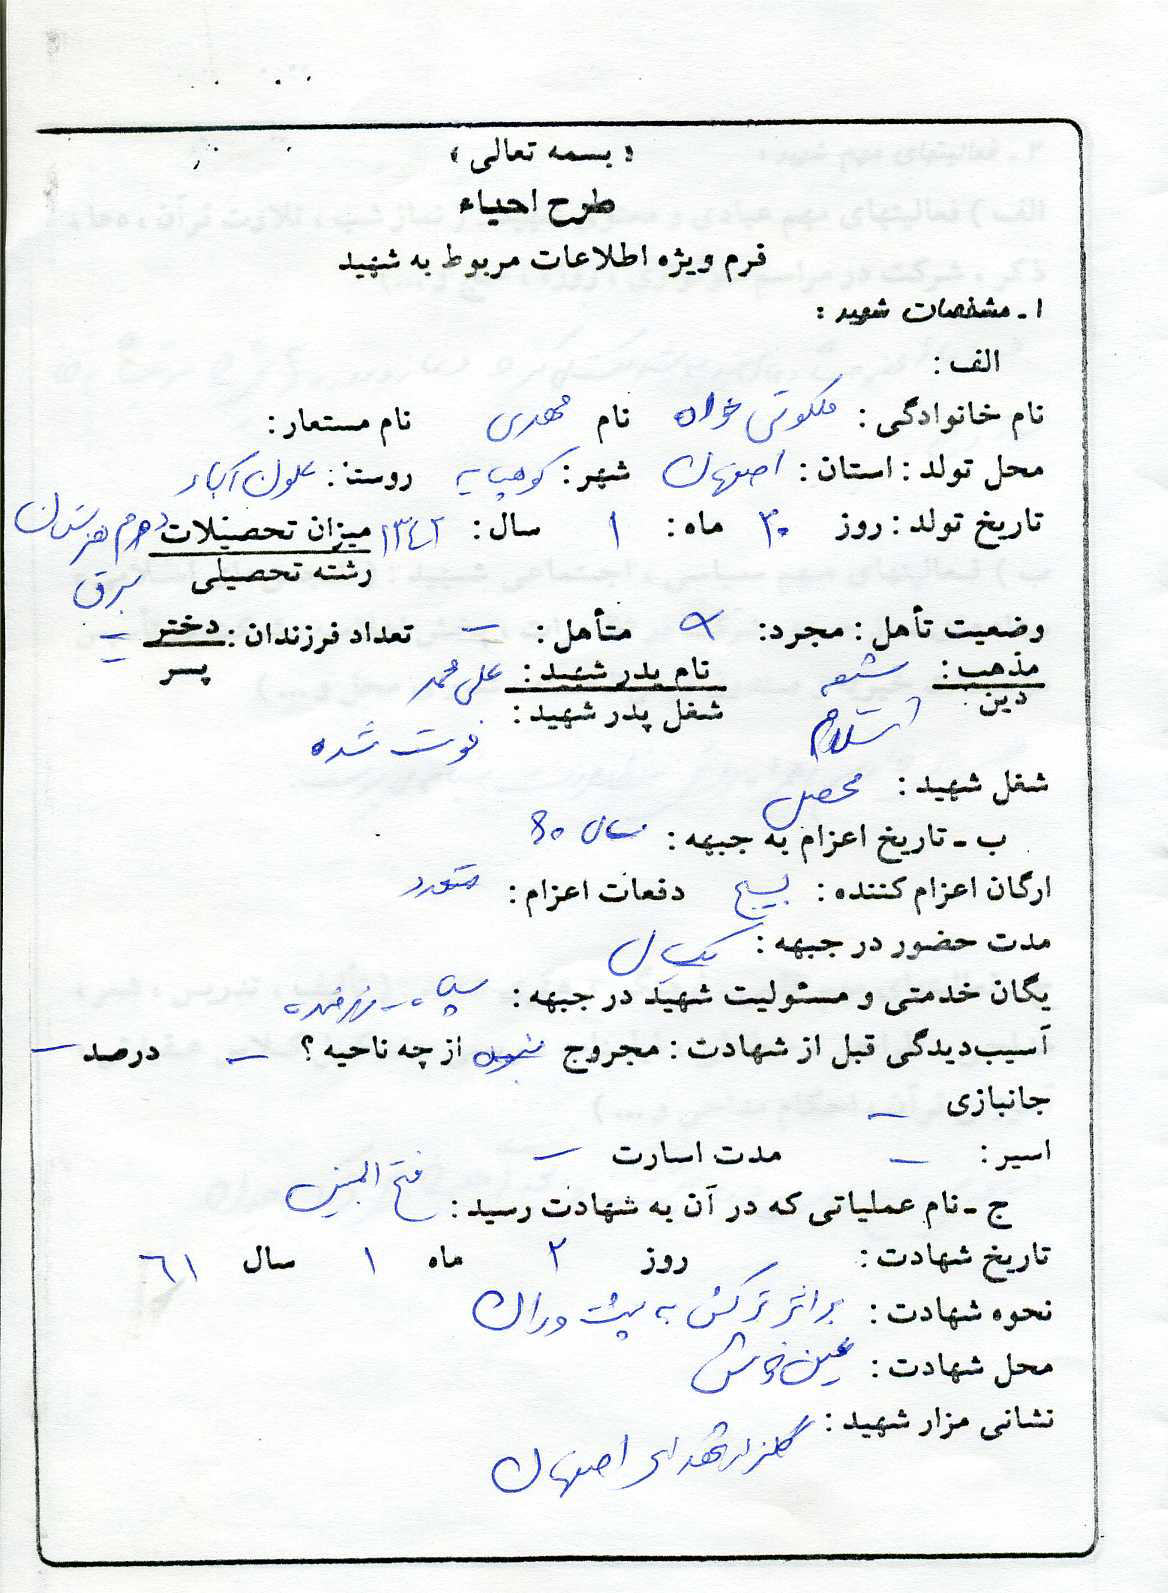 « بسمه تعالی »
طرح احیاء
فرم ویژه اطلاعات مربوط به شهید
۱ ـ مشخصات شهید :
الف :
نام خانوادگی : ملکوتی خواه نام مهدی نام مستعار :
محل تولد : استان : اصفهان شهر : کوهپایه روستا :
تاریخ تولد : روز ۳۰ ماه : ۱ سال : ۱۳۴۲ میزان تحصیلات دوم هنرستان
رشته تحصیلی برق
وضعیت تأهل : مجرد : متأهل : – تعداد فرزندان : دختر –
پسر –
مذهب : شیعه نام پدر شهید : علی محمد
دین : اسلام شغل پدر شهید : فوت شده
شغل شهید : محصل
ب ـ تاریخ اعزام به جبهه : سال ۶۰
ارگان اعزام کننده : بسیج دفعات اعزام : متعدد
مدت حضور در جبهه : یکسال
یگان خدمتی و مسئولیت شهید در جبهه : سپاه –
آسیب‌دیدگی قبل از شهادت : مجروح نبوده از چه ناحیه ؟ – درصد –
جانبازی –
اسیر : – مدت اسارت –
ج ـ نام عملیاتی که در آن به شهادت رسید : فتح المبین
تاریخ شهادت : روز ۲ ماه ۱ سال ۶۱
نحوه شهادت : بر اثر ترکش به پشت و ران
محل شهادت : عین خوش
نشانی مزار شهید : گلزار شهدای اصفهان